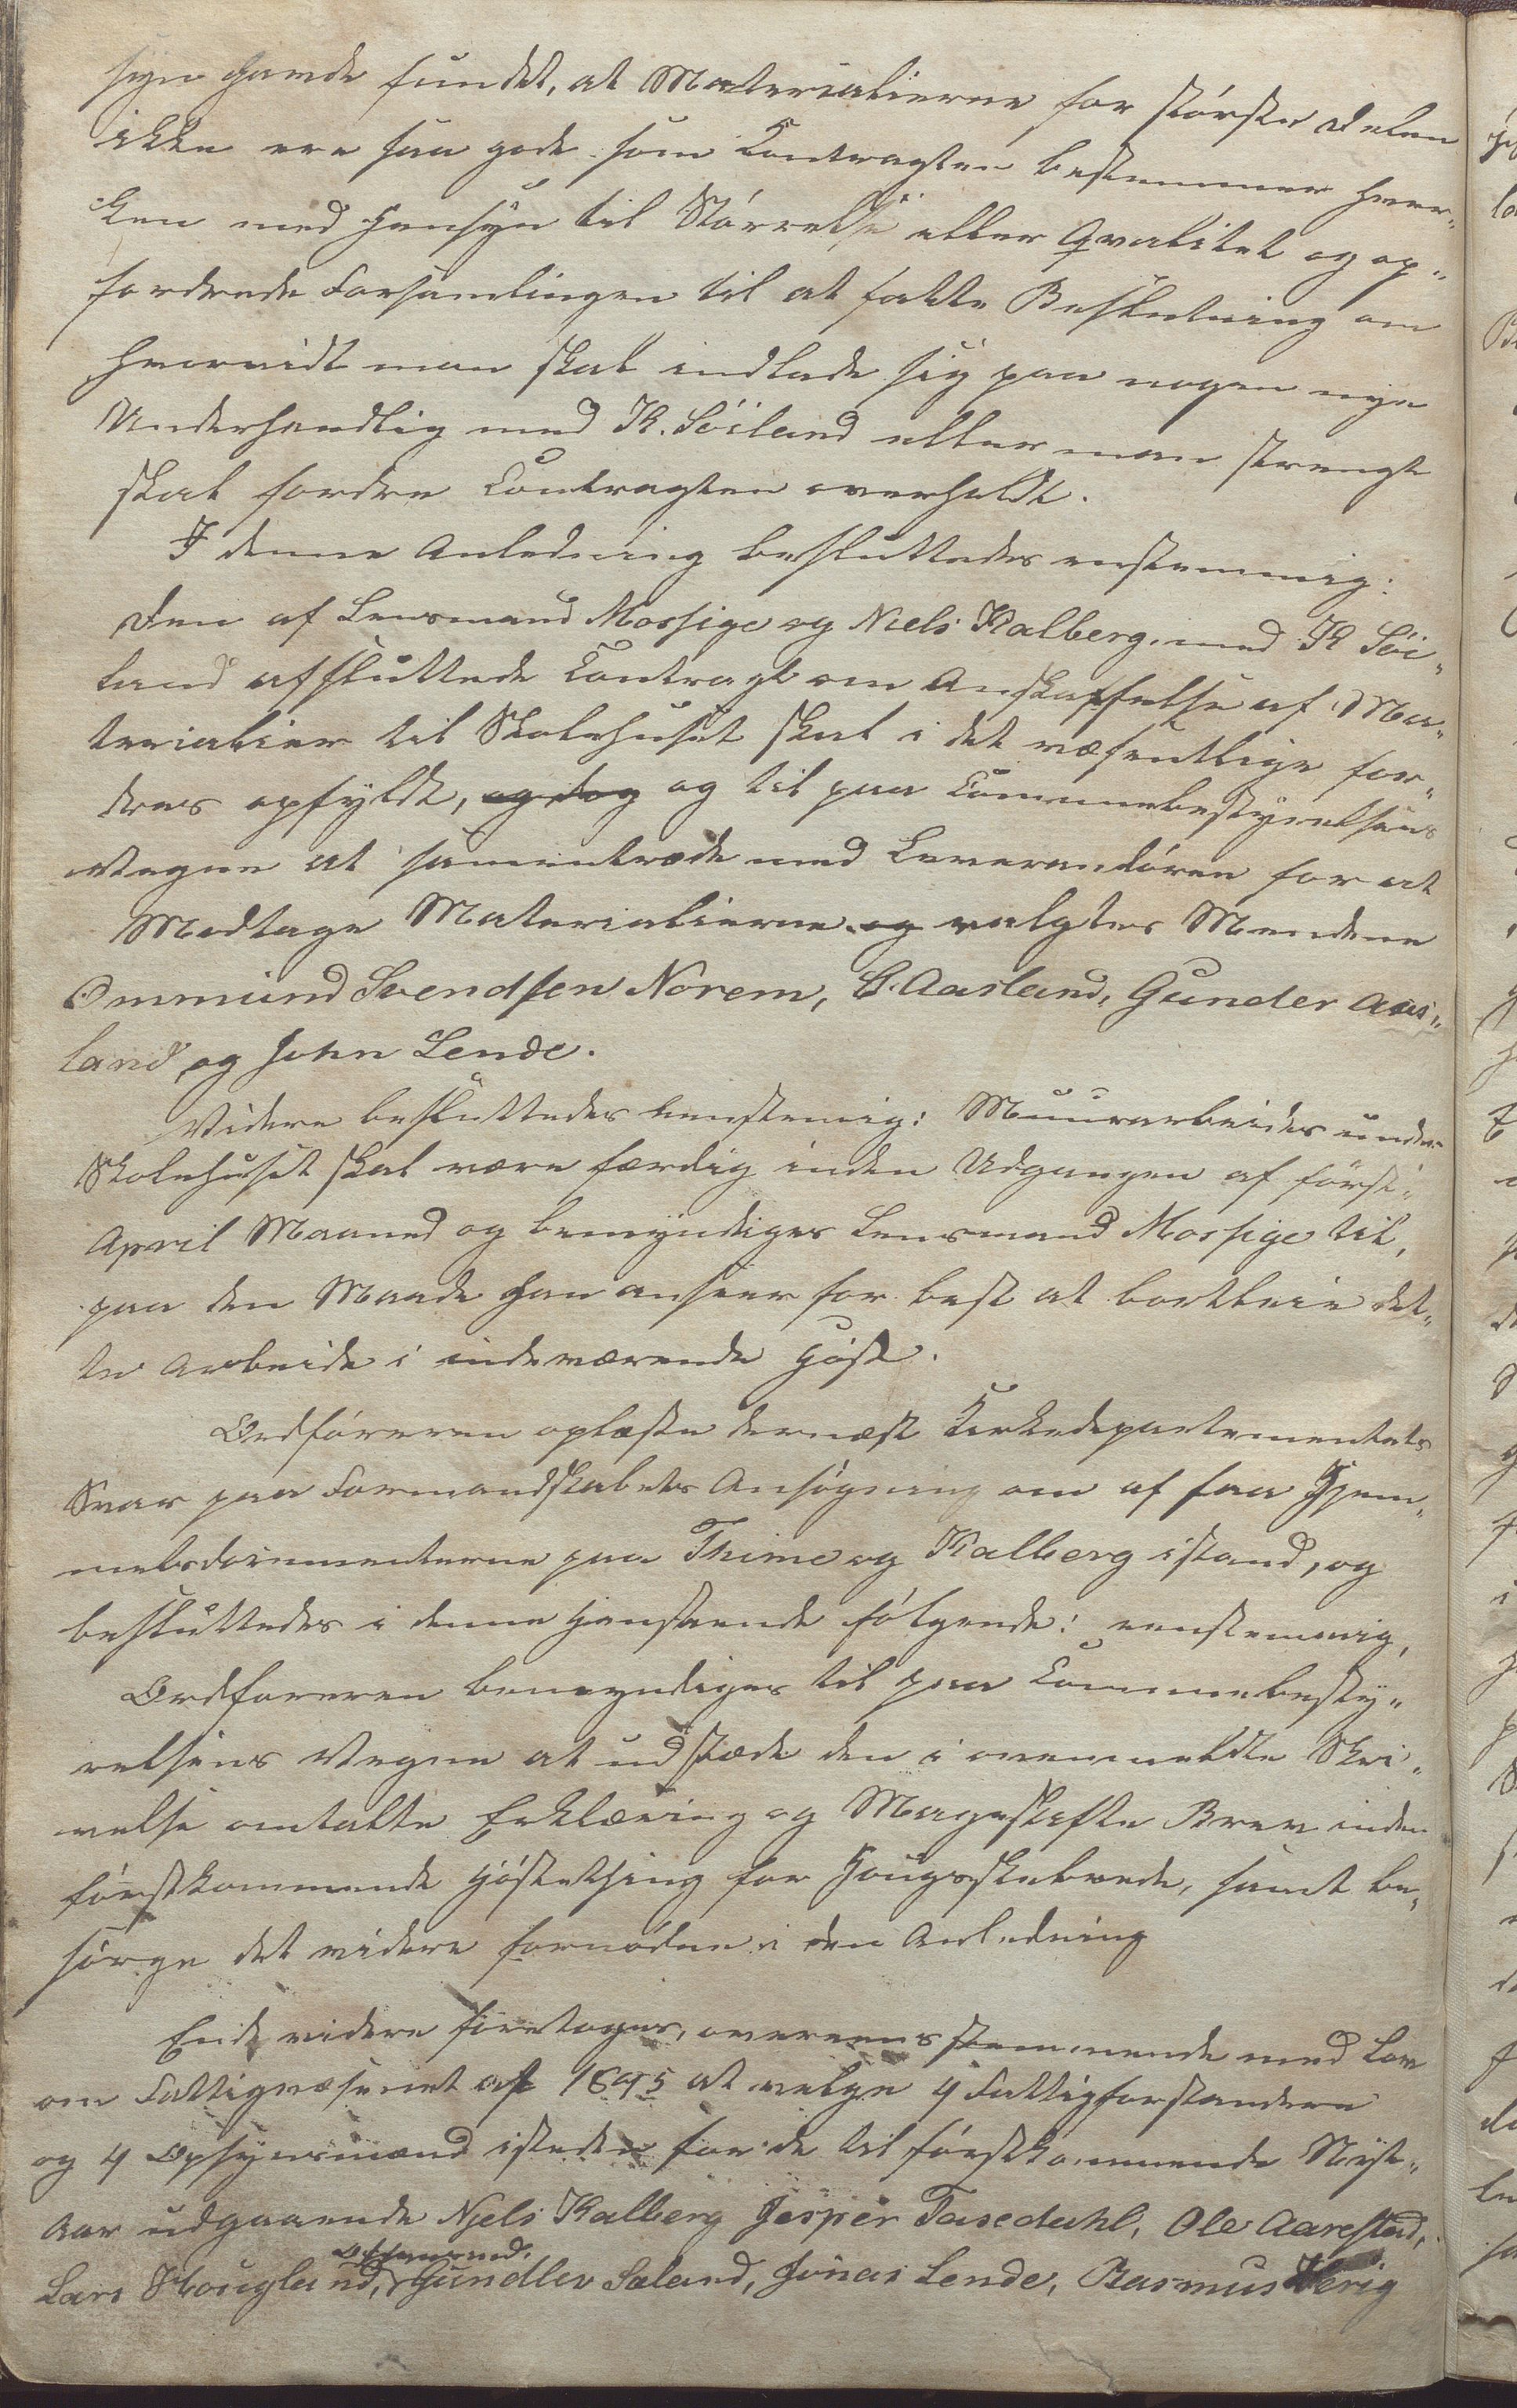 syn havde fundet, at Materialierne for störste Delen
ikke ere saa gode som Contragten bestemmer hver„
ken med Hensyn til Störrelse eller Qvalitet og op„
fordrede Forsamlingen til at fatte Beslutning om
hvorvidt man skal indlade sig paa nogen nye
Underhandlig med K. Söiland eller man strengt
skal fordre Contragten overholdt.
I denne Anledning besluttedes enstemmig:
Den af Lensmand Mossige og Niels Kalberg med K Söi„
land afsluttede Contragt om Anskaffelse af Ma„
terialier til Skolehuset skal i det væsentlige for„
dres opfyldt, og dog og til paa Communebestyrelsens
Vegne at samentræde med Leverandören for at
Modtage Materialierne og valgtes Mendene
Ommund Svendsen Norem, C. Aasland, Gunder Aas„
land og John Lende.
Videre besluttedes eenstemig: Muurarbeider under
Skolehuset skal være færdig inden Udgangen af först„
April Maaned og bemyndiges Lensmand Mossige til,
paa den Maade han anseer for best at bortleie det„
te Arbeide i indeværende Höst.
Ordföreren oplæste dernæst Kirkedepartementets
Svar paa Formandskabets Ansögning om at faa Hjem„
melsdocumenterne paa Thime og Kalberg istand, og
besluttedes i denne Henseende fölgende: eenstemmig,
Ordföreren bemyndiges til paa Communebesty„
relsens Vegne at udstæde den i ovenmeldte Skri„
velse omtalte Erklæring og Mageskifte Brev inden
förstkommende Hösteting for Hougs Skibrede, samt be„
sörge det videre fornödne i den Anledning
End videre foretoges, overeensstemmende med Lov
om Fattigvæsenet af 1845 at velge 4 Fattigforstandere
og 4 Opsynsmænd isteden for de til förstkommende Nyt„
Aar udgaaende Njels Kalberg Jesper Tasedahl, Ole Aarestad,
Opsynsmend.
Lars Hougland, Gundlev Sæland, Jonas Lende, Rasmus Herig